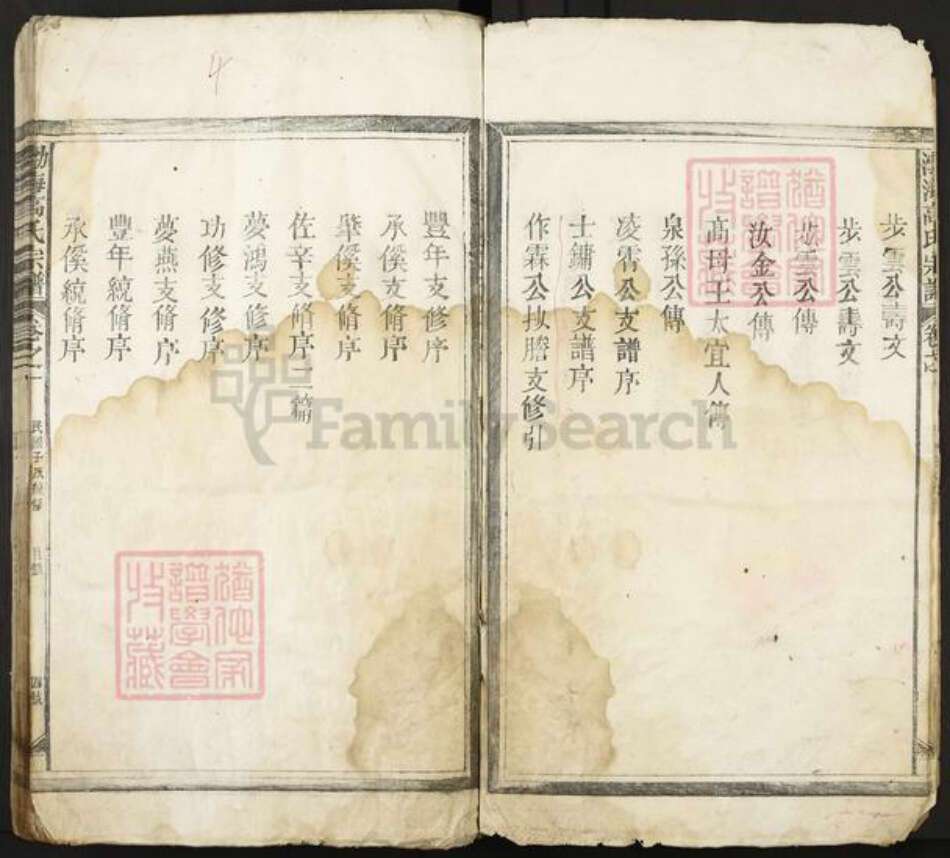 步雲公壽文
步雲公壽文
步雲公傳
汝金公傳
高母王太宜人傳
泉孫公傳
凌霄公支譜序
士鏞公支譜序
作霖公抄謄支修引
豐年支修序
承僕支脩序
肇僕支脩序
佐辛支脩序二篇
夢鴻支修序
功修支修序
夢燕支脩序
豐年統脩序
承僕統脩序
渤海高氏宗譜
卷之一
目錄
渤海高氏宗譜
4
猶他家譜學會收藏
猶他家譜學會收藏
FamilySearch